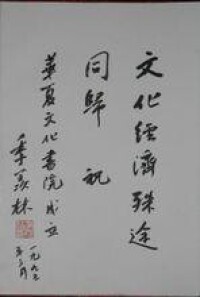 文化經濟殊途
同歸 祝
華夏文化書院成立
季羨林
一九九三
年 月